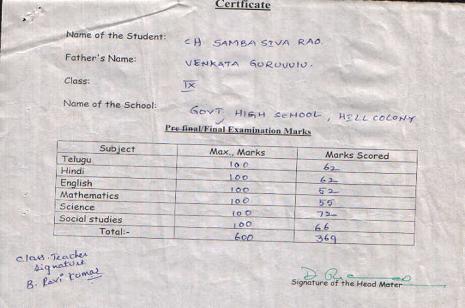 Certficate
Name of the Student: CH. SAMBA SIVA RAO.
Father's Name: VENKATA GURUVULU.
Class: IX
Name of the School: GOVT. HIGH SCHOOL, HILL COLONY
Pre final/Final Examination Marks
Subject Max., Marks Marks Scored
Telugu 100 62
Hindi 100 62
English 100 52
Mathematics 100 55
Science 100 72
Social studies 100 66
Total:- 600 369
Class Teacher
Signature
B. Ravi Kumar
Signature of the Head Mater